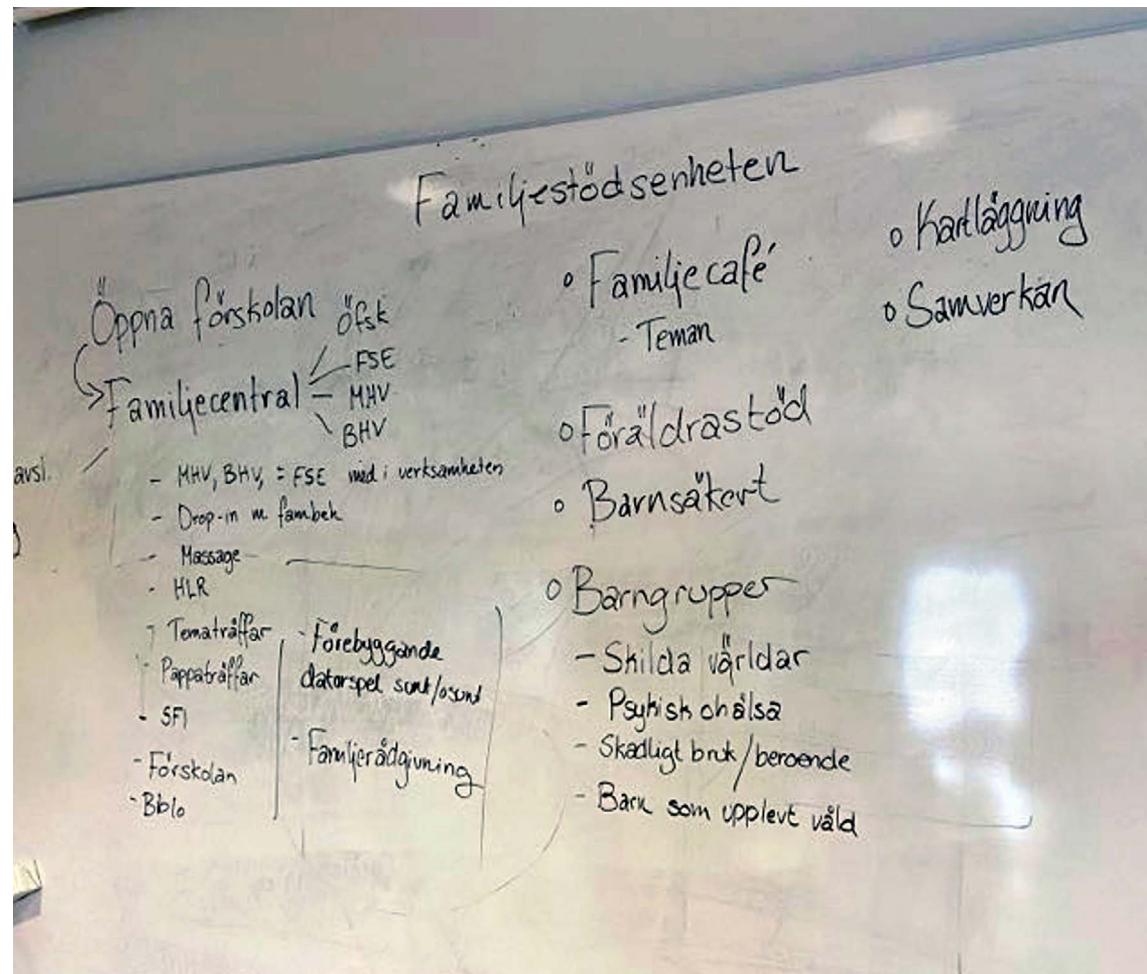 Familjestödsenheten
Öppna förskolan
Öfsk
Familjecentral
FSE
MHV
BHV
avsl.
- MHV, BHV, = FSE med i verksamheten
- Drop-in m fambeh
- Massage
- HLR
- Tematräffar
- Pappaträffar
- SFI
- Förskolan
- Biblo
- Förebyggande
datorspel sunt/osunt
- Familjerådgivning
o Familjecafé
- Teman
o Föräldrastöd
o Barnsäkert
o Barngrupper
- Skilda världar
- Psykisk ohälsa
- Skadligt bruk/beroende
- Barn som upplevt våld
o Kartläggning
o Samverkan